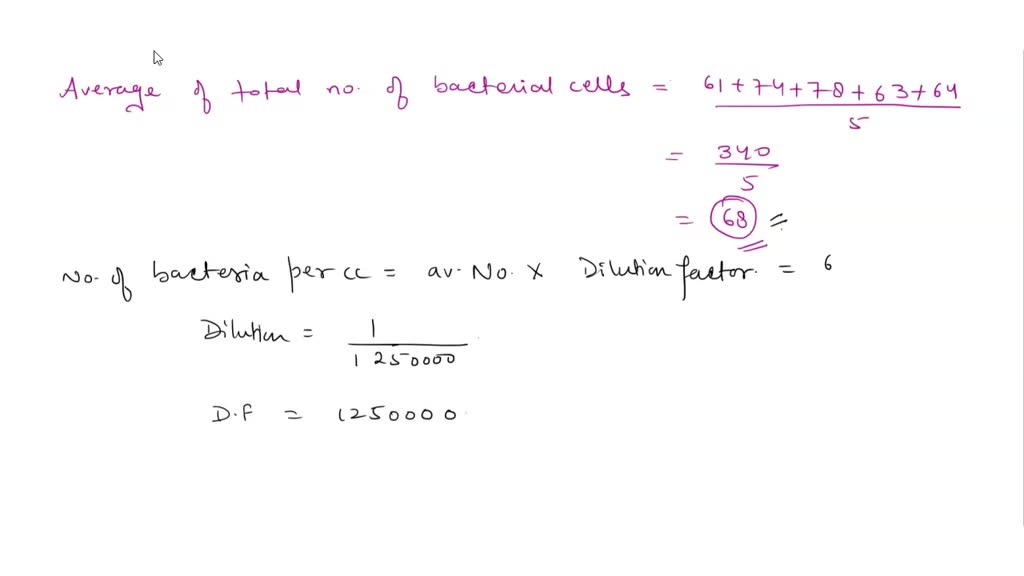 Average of total no. of bacterial cells = 61+74+78+63+64
5
= 340
5
= 68 =
No. of bacteria per cc = av. No. X Dilution factor. = 6
Dilution = 1
1250000
D.F = 1250000